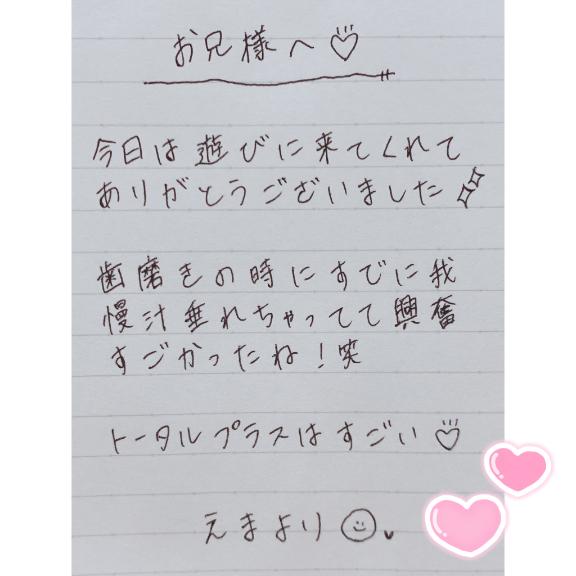 お兄様へ♡
今日は遊びに来てくれて
ありがとうございました
歯磨きの時にすでに我
慢汁垂れちゃってて興奮
すごかったね！笑
トータルプラスはすごい♡
えまより